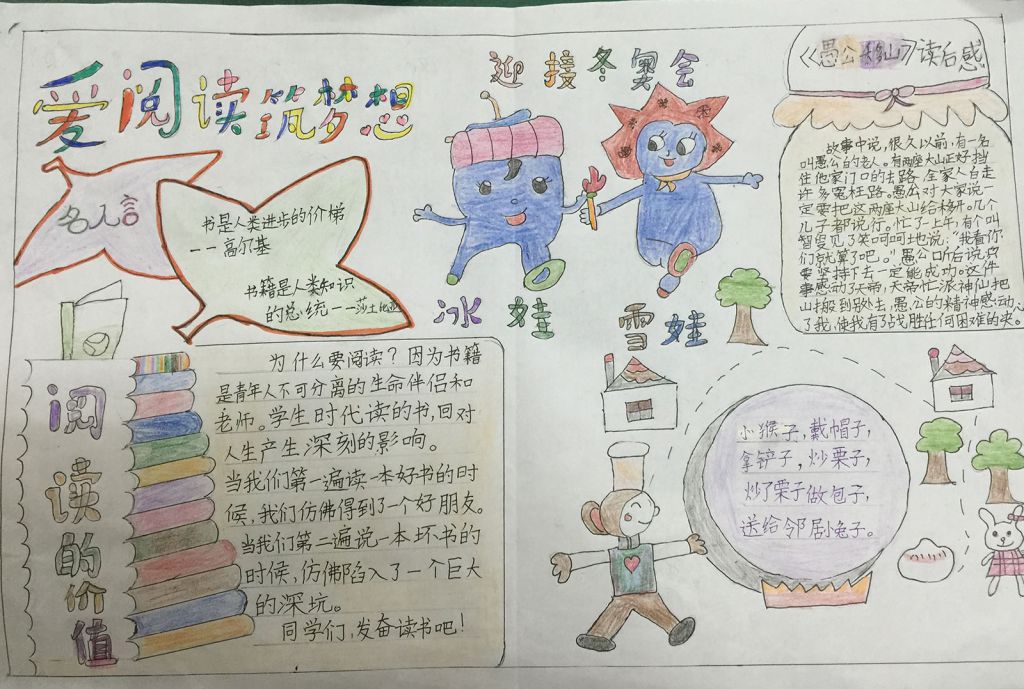 爱阅读筑梦想
名人言
书是人类进步的价梯
——高尔基
书籍是人类知识
的总统——莎士比亚
阅读的价值
为什么要阅读？因为书籍
是青年人不可分离的生命伴侣和
老师。学生时代读的书，回对
人生产生深刻的影响。
当我们第一遍读一本好书的时
候，我们仿佛得到了一个好朋友。
当我们第二遍说一本坏书的
时候，仿佛陷入了一个巨大
的深坑。
同学们，发奋读书吧！
迎接冬奥会
冰娃
雪娃
《愚公移山》读后感
故事中说，很久以前，有一名
叫愚公的老人。有两座大山正好挡
住他家门口的去路，全家人白走
许多冤枉路。愚公对大家说一
定要把这两座大山给移开。几个
儿子都说行。忙了一上午，有个叫
智叟见了笑呵呵地说：“我看你
们就算了吧。”愚公听后说只
要坚持下去一定能成功。这件
事感动了天帝，天帝忙派神仙把
山搬到别处去，愚公的精神感动
了我，使我有了战胜任何困难的
小猴子，戴帽子，
拿铲子，炒栗子，
炒了栗子做包子，
送给邻居小兔子。